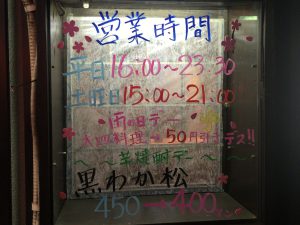 営業時間
平日16:00〜23:30
土日15:00〜21:00
雨の日デー
50円引きデス!!
黒わか松
450→400